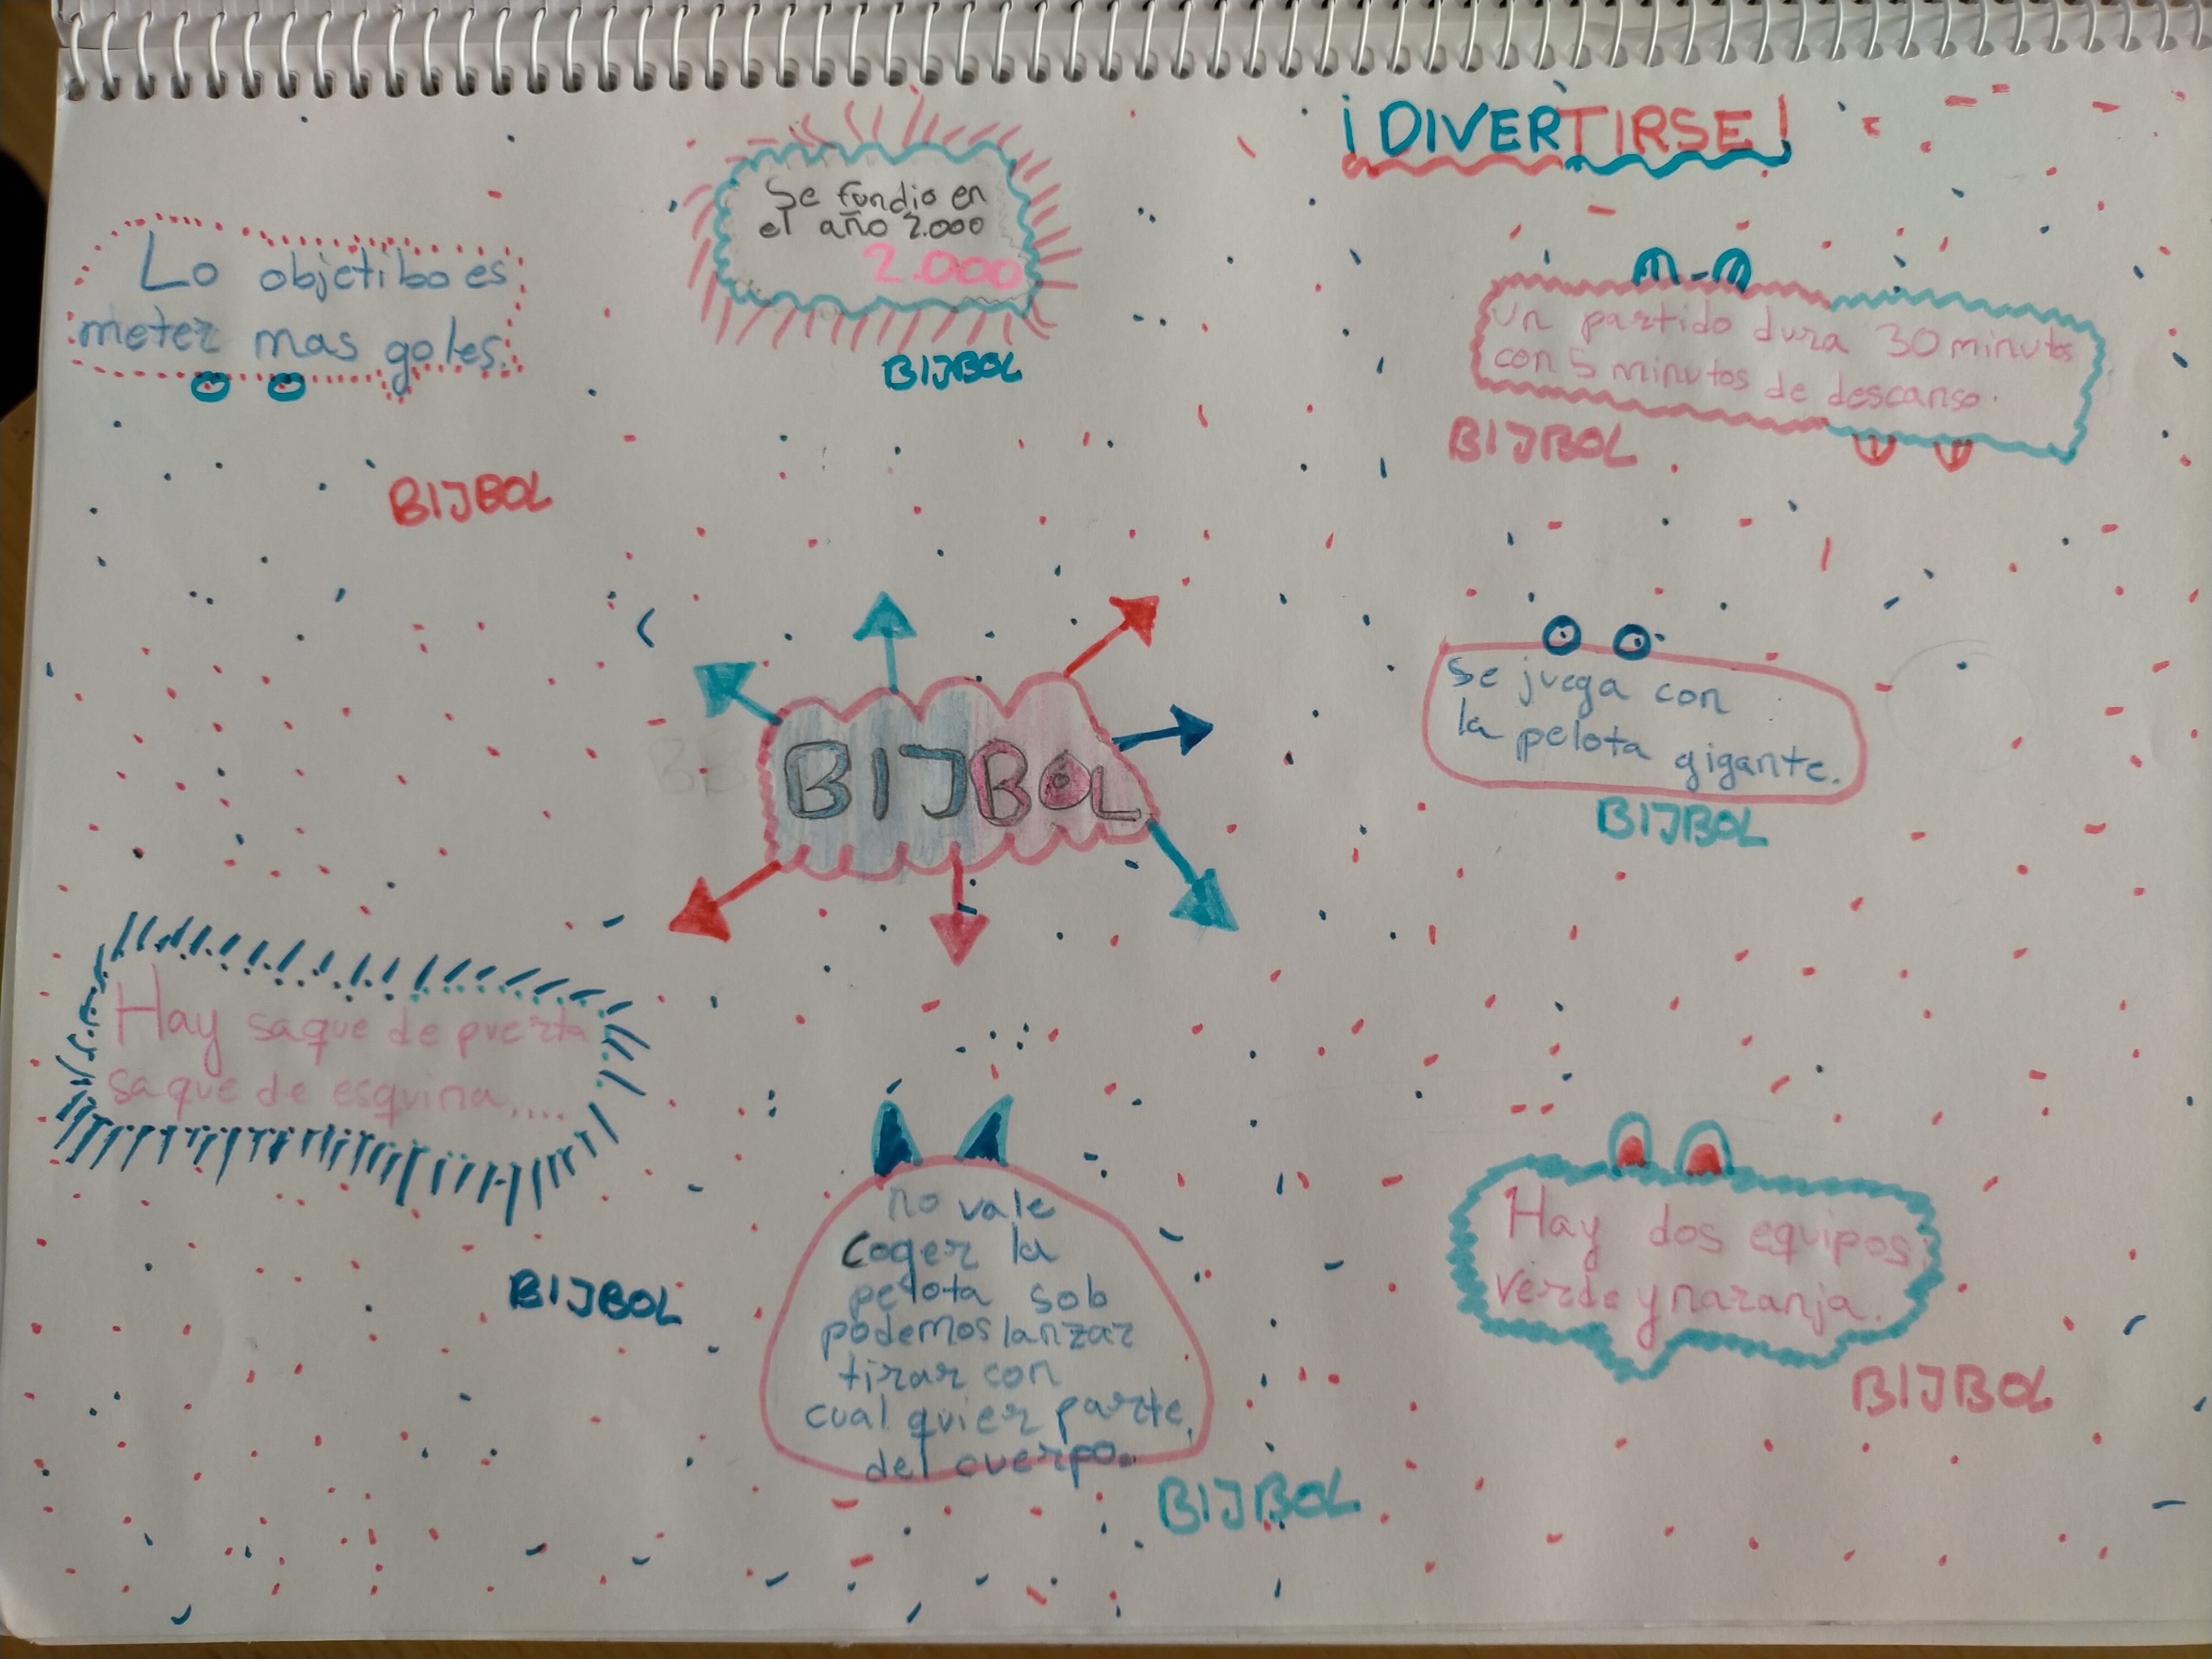 ¡DIVERTIRSE!
Se fundio en
el año 2.000
2.000
BIJBOL
Lo objetibo es
meter mas goles.
BIJBOL
Un partido dura 30 minutos
con 5 minutos de descanso.
BIJBOL
BIJBOL
Se juega con
la pelota gigante.
BIJBOL
Hay saque de puerta
saque de esquina,...
BIJBOL
no vale
Coger la
pelota sob
podemos lanzar
tirar con
cualquier parte,
del cuerpo.
BIJBOL
Hay dos equipos:
verde y naranja.
BIJBOL